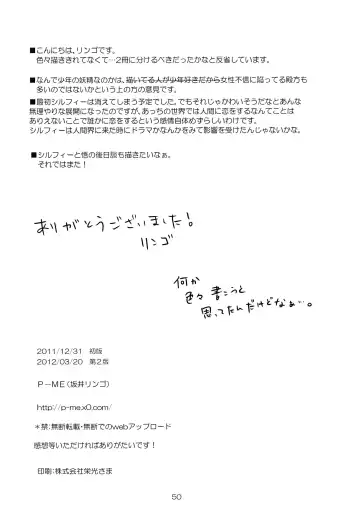 ■こんにちは、リンゴです。
色々描ききれてなくて…2冊に分けるべきだったかなと反省しています。
■なんで少年の妖精なのかは、描いてる人が少年好きだから女性不信に陥ってる殿方も
多いのではないかという上の方の意見です。
■最初シルフィーは消えてしまう予定でした。でもそれじゃかわいそうだなとあんな
無理やりな展開になったのですが、あっちの世界では人間に恋をするなんてことは
ありえないことで誰かに恋をするという感情自体めずらしいわけです。
シルフィーは人間界に来た時にドラマかなんかをみて影響を受けたんじゃないかな。
■シルフィーと悟の後日談も描きたいなぁ。
それではまた！
ありがとうございました！
リンゴ
何か
色々書こうと
思ってたんだけどなぁ…。
2011/12/31 初版
2012/03/20 第2版
P－ME（坂井リンゴ）
http://p-me.x0.com/
＊禁：無断転載・無断でのwebアップロード
感想等いただければありがたいです！
印刷：株式会社栄光さま
50